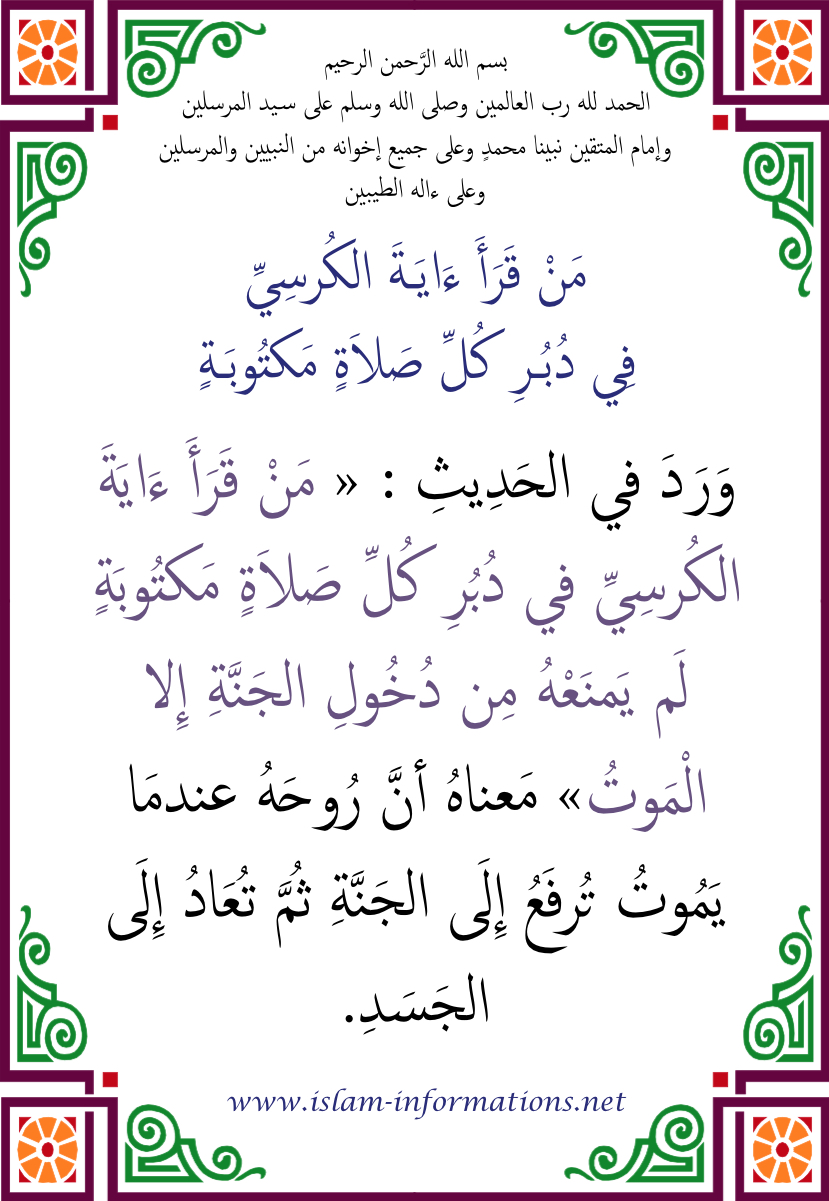 بسم الله الرَّحمن الرحيم
الحمد لله رب العالمين وصلى الله وسلم على سيد المرسلين
وإمام المتقين نبينا محمدٍ وعلى جميع إخوانه من النبيين والمرسلين
وعلى ءاله الطيبين
مَنْ قَرَأَ ءَايَةَ الكُرسِيِّ
فِي دُبُرِ كُلِّ صَلاَةٍ مَكتُوبَةٍ
وَرَدَ في الحَدِيثِ : « مَنْ قَرَأَ ءَايَةَ
الكُرسِيِّ في دُبُرِ كُلِّ صَلاَةٍ مَكتُوبَةٍ
لَم يَمنَعْهُ مِن دُخُولِ الجَنَّةِ إِلا
الْمَوتُ» مَعناهُ أنَّ رُوحَهُ عندمَا
يَمُوتُ تُرفَعُ إِلَى الجَنَّةِ ثُمَّ تُعَادُ إِلَى
الجَسَدِ.
www.islam-informations.net